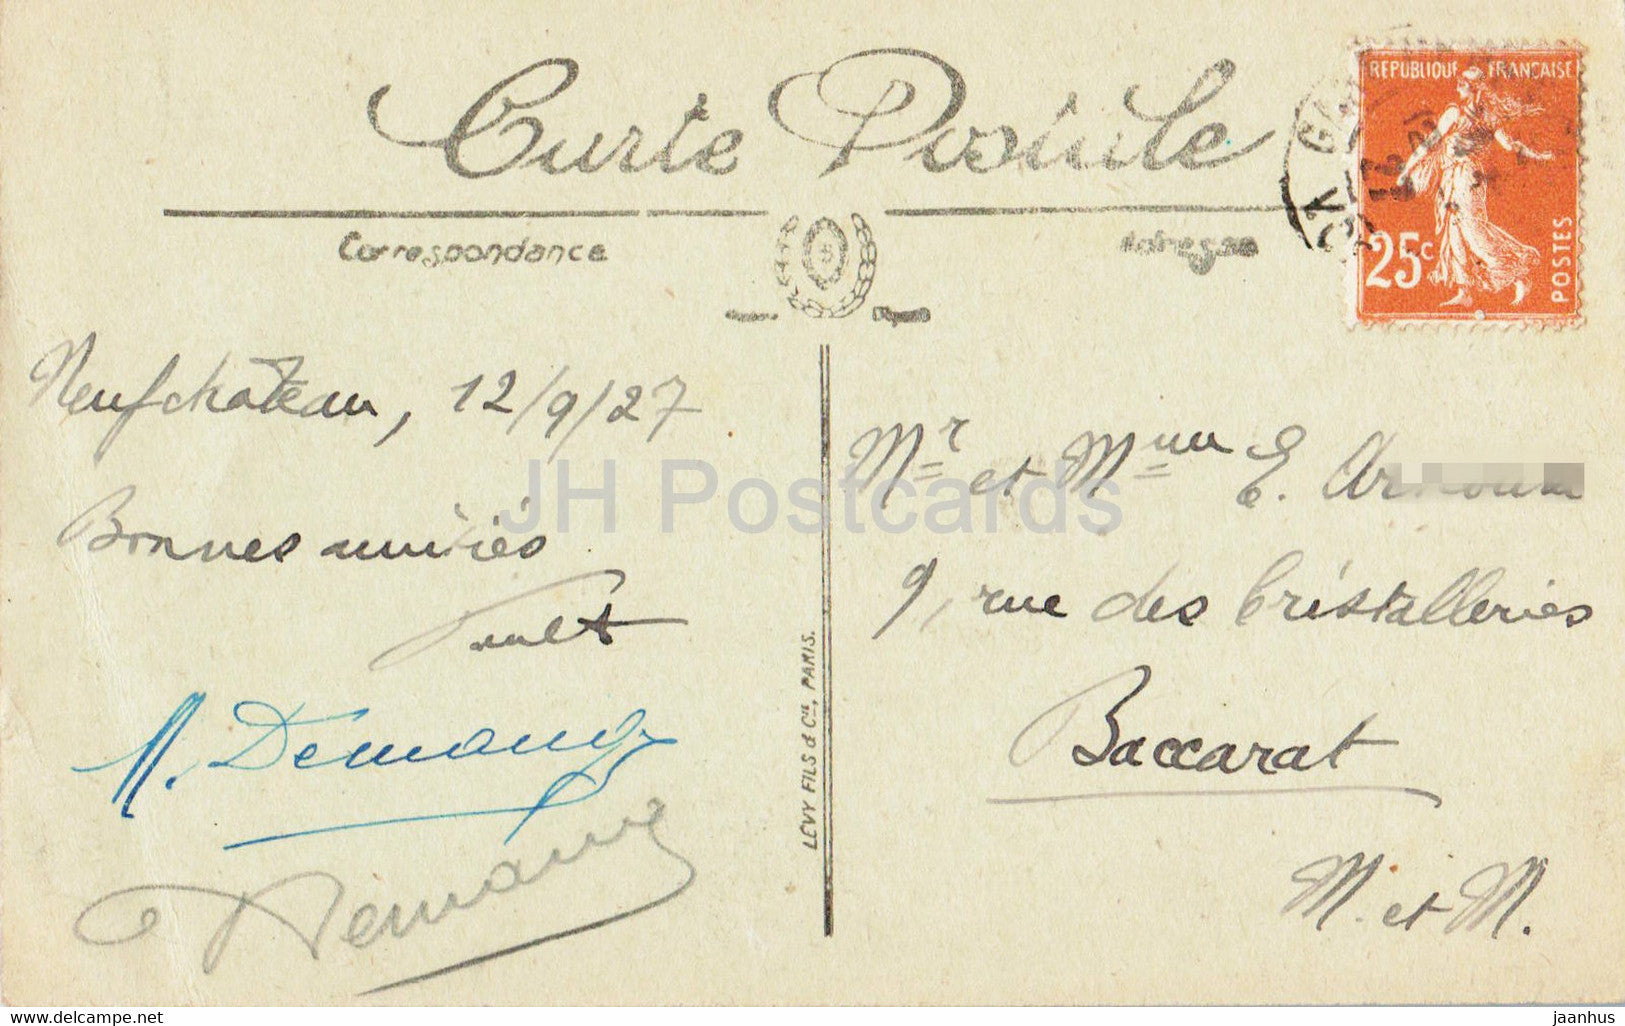 Carte Postale
Correspondance
Adresse
RÉPUBLIQUE FRANÇAISE
25c
POSTES
Neufchâteau, 12/9/27
Bonnes amitiés
M. Demange
Demange
LÉVY FILS & Cie, PARIS.
Mr et Mme E.
9, rue des Cristalleries
Baccarat
M. et M.
JH Postcards
delcampe.net/en
jaanhus